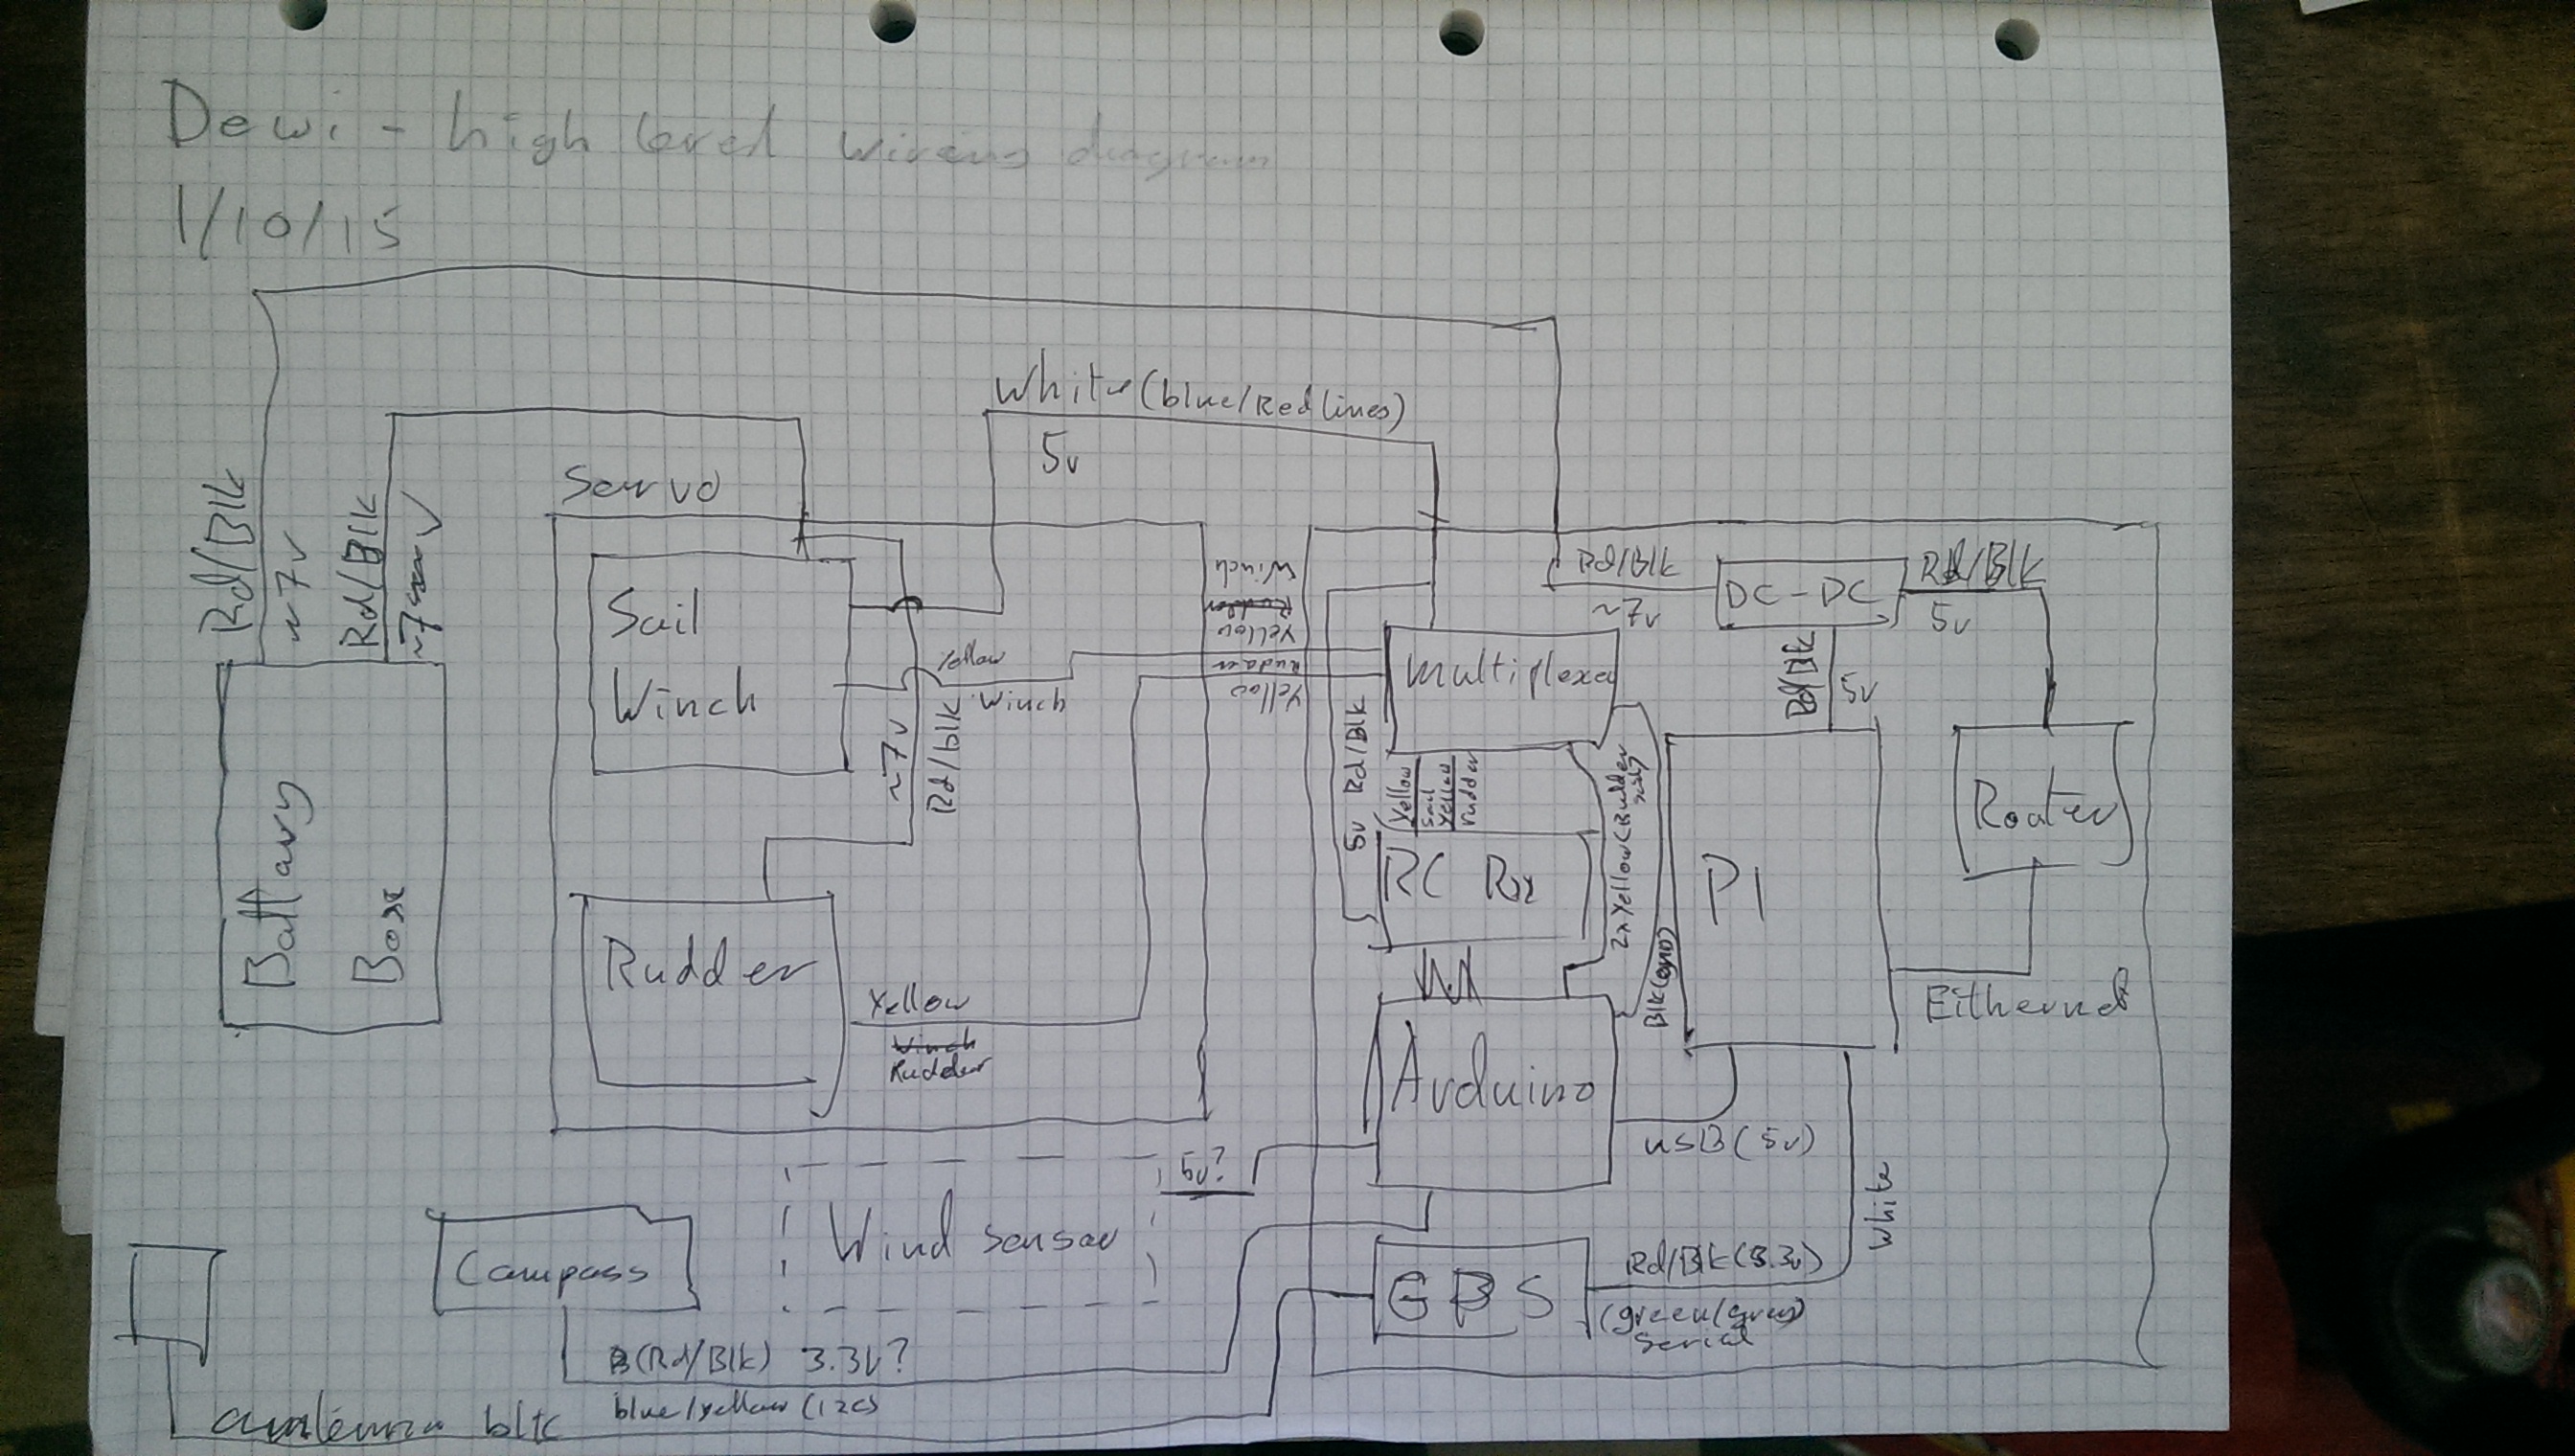 Dewi - high level wiring diagram
1/10/15
White (blue/Red lines)
5v
Servo
Rd/Blk
~7v
Rd/Blk
~7v
Battary
Box
Sail
Winch
Yellow
Winch
~7v
Rd/blk
Rudder
Yellow
Winch
Rudder
Winch
Rudder
Yellow
Rudder
Yellow
Rd/Blk
~7v
DC-DC
Rd/Blk
5v
Rd/Blk
5v
Multiplexer
5v Rd/Blk
Yellow
Sail
Yellow
rudder
2x Yellow (Rudder
Sail)
Blk (GND)
RC Rx
PI
Router
Eithernet
Arduino
USB (5v)
White
5v?
Wind sensor
Compass
GPS
Rd/Blk (3.3v)
(green/grey)
Serial
(Rd/Blk) 3.3v?
blue/yellow (i2c)
antenna blk